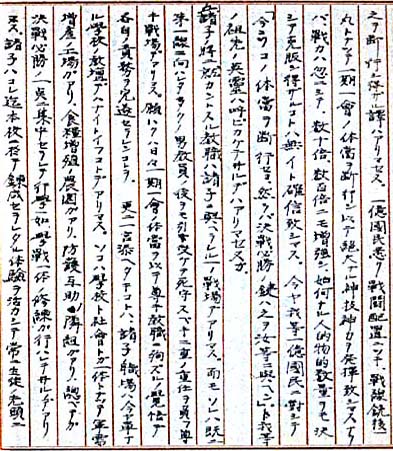 之ヲ断行シ得ザル譯ハアリマセヌ。一億国民悉ク戦闘配置ニツキ、戦線銃後一
丸トナッテ一期一會ノ体當ヲ断行シ以テ絶大ナル神技神力ヲ発揮致シマスナラ
バ戦力ハ忽ニシテ数十倍、数百倍ニモ増強シ如何ナル人的物的数量ヲモ決
シテ克服シ得ザルコトハ無イト確信致シマス。今ヤ我等一億国民ニ對シテ
「今コソコノ体當ヲ断行セヨ然ラバ決戦必勝ノ鍵ハ之ヲ汝等ニ與ヘン」ト我等
ノ祖先ノ英霊ハ呼ビカケテ
諸子ノ将ニ赴カントスル教職ハ諸子ニ與ヘラレタル戦場デアリマス。而モソレハ既ニ
第一線ニ向ヒタル多クノ男教員ノ後ヲモ引キ受ケテ死守スベキ二重ノ重任ヲ負フ尊
キ戦場デアリマス。願ハクハ日々一期一會ノ体當ヲ以テ尊キ教職ニ殉ズルノ覚悟デ
各自ノ責務ヲ完遂セラレンコトヲ。更ニ一言添ヘタキコトハ、諸子ノ職場ハ今ヤ単ナ
ル学校ノ教壇デハナイトイフコトデアリマス。ソコハ学校ト社會トガ一体トナッテ軍需
増産ノ工場ガアリ、食糧増殖ノ農園ガアリ、防護互助ノ隣組ガアリ、総ベテガ
決戦必勝ノ一点ニ集中セラレテ行学一如、戦学一体ノ修練ガ行ハレテヰルノデアリ
マス。諸子ハコレ迄本校ニ於テ錬成セラレタル体験ヲ活カシテ常ニ生徒ノ先頭ニ